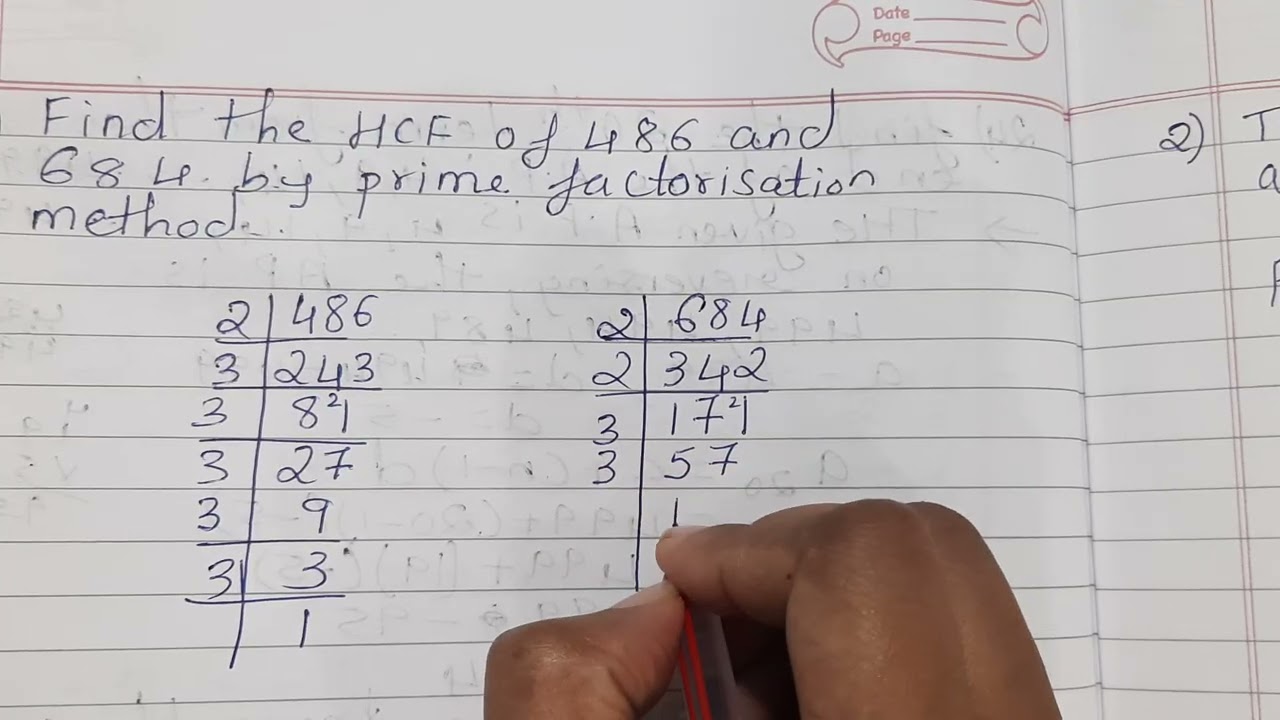 Date
Page
Find the HCF of 486 and
684 by prime factorisation
method.
2 | 486
3 | 243
3 | 8²1
3 | 27
3 | 9
3 | 3
1
2 | 684
2 | 342
3 | 17²1
3 | 57
1
2) T
a